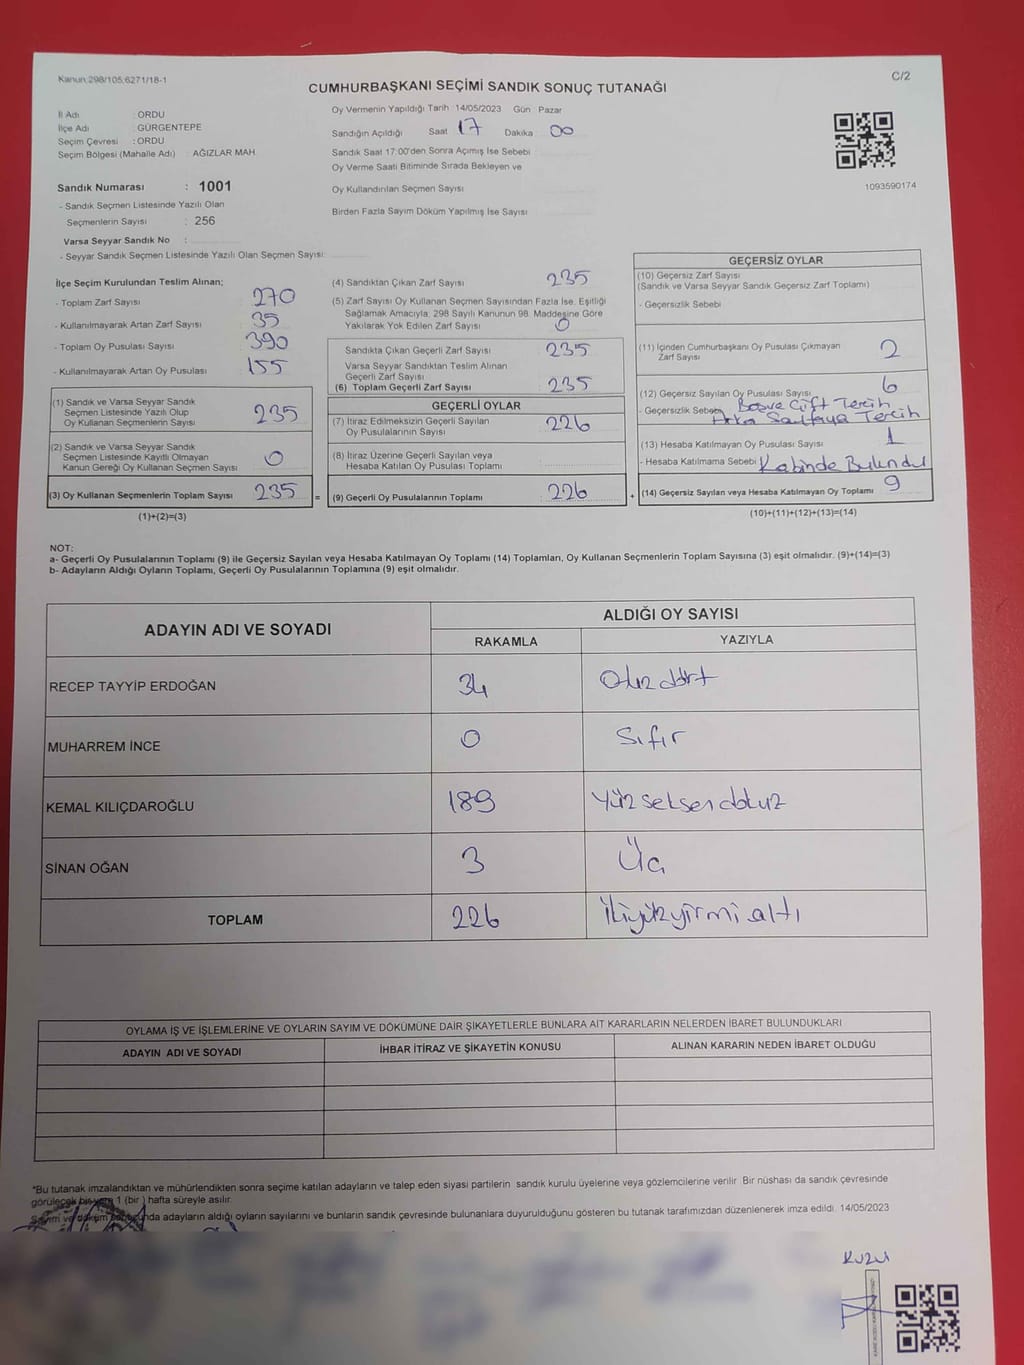 Kanun:298/105;6271/18-1
C/2
CUMHURBAŞKANI SEÇİMİ SANDIK SONUÇ TUTANAĞI
İl Adı : ORDU
İlçe Adı : GÜRGENTEPE
Seçim Çevresi : ORDU
Seçim Bölgesi (Mahalle Adı) : AĞIZLAR MAH.
Sandık Numarası : 1001
- Sandık Seçmen Listesinde Yazılı Olan
Seçmenlerin Sayısı : 256
Varsa Seyyar Sandık No :
- Seyyar Sandık Seçmen Listesinde Yazılı Olan Seçmen Sayısı:
Oy Vermenin Yapıldığı Tarih 14/05/2023 Gün Pazar
Sandığın Açıldığı Saat 17 Dakika 00
Sandık Saat 17:00'den Sonra Açımış İse Sebebi
Oy Verme Saati Bitiminde Sırada Bekleyen ve
Oy Kullandırılan Seçmen Sayısı
Birden Fazla Sayım Döküm Yapılmış İse Sayısı
1093590174
İlçe Seçim Kurulundan Teslim Alınan;
- Toplam Zarf Sayısı 270
- Kullanılmayarak Artan Zarf Sayısı 35
- Toplam Oy Pusulası Sayısı 390
- Kullanılmayarak Artan Oy Pusulası 155
(1) Sandık ve Varsa Seyyar Sandık
Seçmen Listesinde Yazılı Olup
Oy Kullanan Seçmenlerin Sayısı 235
(2) Sandık ve Varsa Seyyar Sandık
Seçmen Listesinde Kayıtlı Olmayan
Kanun Gereği Oy Kullanan Seçmen Sayısı 0
(3) Oy Kullanan Seçmenlerin Toplam Sayısı 235 =
(1)+(2)=(3)
(4) Sandıktan Çıkan Zarf Sayısı 235
(5) Zarf Sayısı Oy Kullanan Seçmen Sayısından Fazla İse, Eşitliği
Sağlamak Amacıyla, 298 Sayılı Kanunun 98. Maddesine Göre
Yakılarak Yok Edilen Zarf Sayısı 0
Sandıkta Çıkan Geçerli Zarf Sayısı 235
Varsa Seyyar Sandıktan Teslim Alınan
Geçerli Zarf Sayısı
(6) Toplam Geçerli Zarf Sayısı 235
GEÇERLİ OYLAR
(7) İtiraz Edilmeksizin Geçerli Sayılan
Oy Pusulalarının Sayısı 226
(8) İtiraz Üzerine Geçerli Sayılan veya
Hesaba Katılan Oy Pusulası Toplamı
(9) Geçerli Oy Pusulalarının Toplamı 226 +
GEÇERSİZ OYLAR
(10) Geçersiz Zarf Sayısı
(Sandık ve Varsa Seyyar Sandık Geçersiz Zarf Toplamı)
- Geçersizlik Sebebi
(11) İçinden Cumhurbaşkanı Oy Pusulası Çıkmayan
Zarf Sayısı 2
(12) Geçersiz Sayılan Oy Pusulası Sayısı 6
- Geçersizlik Sebebi Boşve Çift Tercih
Arka Sayfaya Tercih
(13) Hesaba Katılmayan Oy Pusulası Sayısı 1
- Hesaba Katılmama Sebebi Kabinde Bulundu
(14) Geçersiz Sayılan veya Hesaba Katılmayan Oy Toplamı 9
(10)+(11)+(12)+(13)=(14)
NOT:
a- Geçerli Oy Pusulalarının Toplamı (9) ile Geçersiz Sayılan veya Hesaba Katılmayan Oy Toplamı (14) Toplamları, Oy Kullanan Seçmenlerin Toplam Sayısına (3) eşit olmalıdır. (9)+(14)=(3)
b- Adayların Aldığı Oyların Toplamı, Geçerli Oy Pusulalarının Toplamına (9) eşit olmalıdır.
ADAYIN ADI VE SOYADI ALDIĞI OY SAYISI
RAKAMLA YAZIYLA
RECEP TAYYİP ERDOĞAN 34 Otuz dört
MUHARREM İNCE 0 Sıfır
KEMAL KILIÇDAROĞLU 189 Yüz seksen dokuz
SİNAN OĞAN 3 Üç
TOPLAM 226 İkiyüzyirmi altı
OYLAMA İŞ VE İŞLEMLERİNE VE OYLARIN SAYIM VE DÖKÜMÜNE DAİR ŞİKAYETLERLE BUNLARA AİT KARARLARIN NELERDEN İBARET BULUNDUKLARI
ADAYIN ADI VE SOYADI İHBAR İTİRAZ VE ŞİKAYETİN KONUSU ALINAN KARARIN NEDEN İBARET OLDUĞU
*Bu tutanak imzalandıktan ve mühürlendikten sonra seçime katılan adayların ve talep eden siyasi partilerin sandık kurulu üyelerine veya gözlemcilerine verilir. Bir nüshası da sandık çevresinde
görülecek bir yere 1 (bir ) hafta süreyle asılır.
Sayım ve döküm sonucunda adayların aldığı oyların sayılarını ve bunların sandık çevresinde bulunanlara duyurulduğunu gösteren bu tutanak tarafımızdan düzenlenerek imza edildi. 14/05/2023